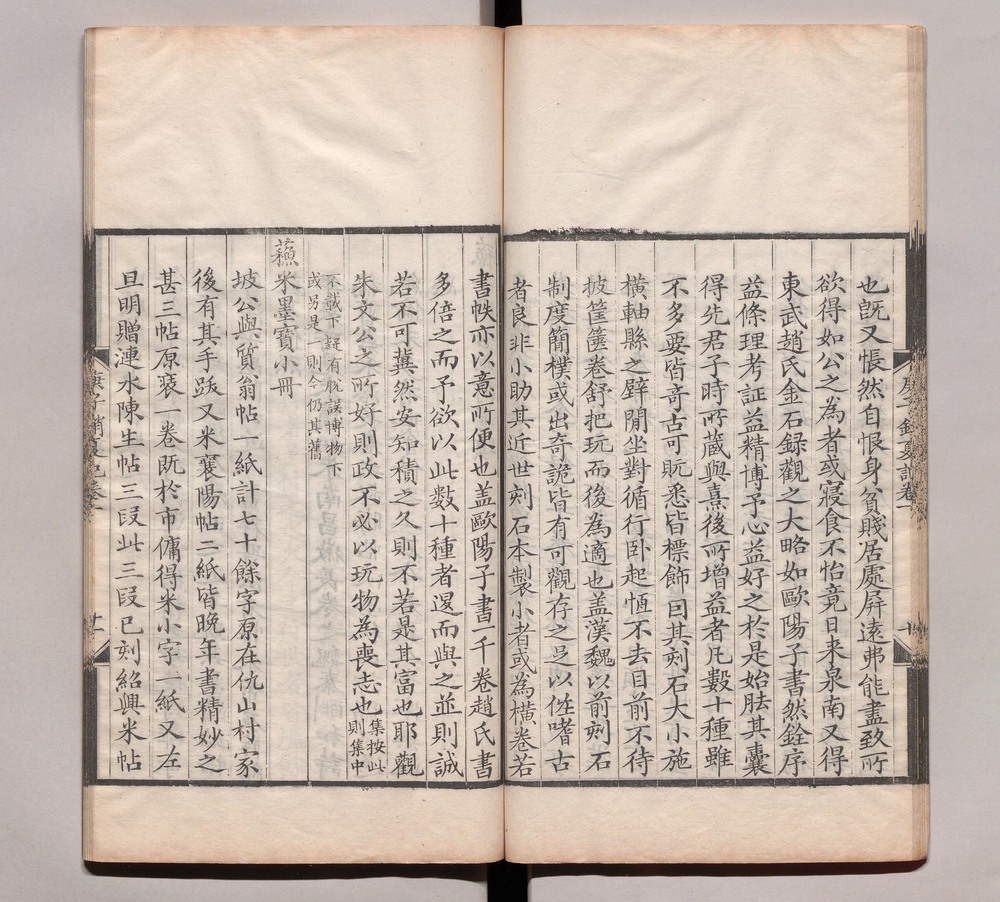 也既又悵然自恨身貧賤居處屏遠弗能盡致所
欲得如公之為者或寢食不怡竟日来泉南又得
東武趙氏金石録觀之大略如歐陽子書然銓序
益條理考証益精博予心益好之於是始胠其囊
得先君子時所蔵與熹後所增益者凡數十種雖
不多要皆竒古可翫悉皆標飾因其刻石大小施
橫軸縣之壁間坐對循行卧起恆不去目前不待
披筐篋卷舒把玩而後為適也盖漢魏以前刻石
制度簡樸或出奇詭皆有可觀存之足以佐嗜古
者良非小助其近世刻石本製小者或為橫卷若
書帙亦以意所便也盖歐陽子書一千卷趙氏書
多倍之而予欲以此數十種者還而與之並則誠
若不可冀然安知積之久則不若是其富也耶觀
朱文公之所好則政不必以玩物為喪志也集按此
則集中
不載下疑有脫誤博物下
或另是一則今仍其舊
蘓米墨寶小冊
坡公與質翁帖一紙計七十餘字原在仇山村家
後有其手跋又米襄陽帖二紙皆晚年書精妙之
甚三帖原裱一卷既於市傭得米小字一紙又左
旦明贈漣水陳生帖三段此三段已刻紹興米帖
庚子銷夏記卷一
十一